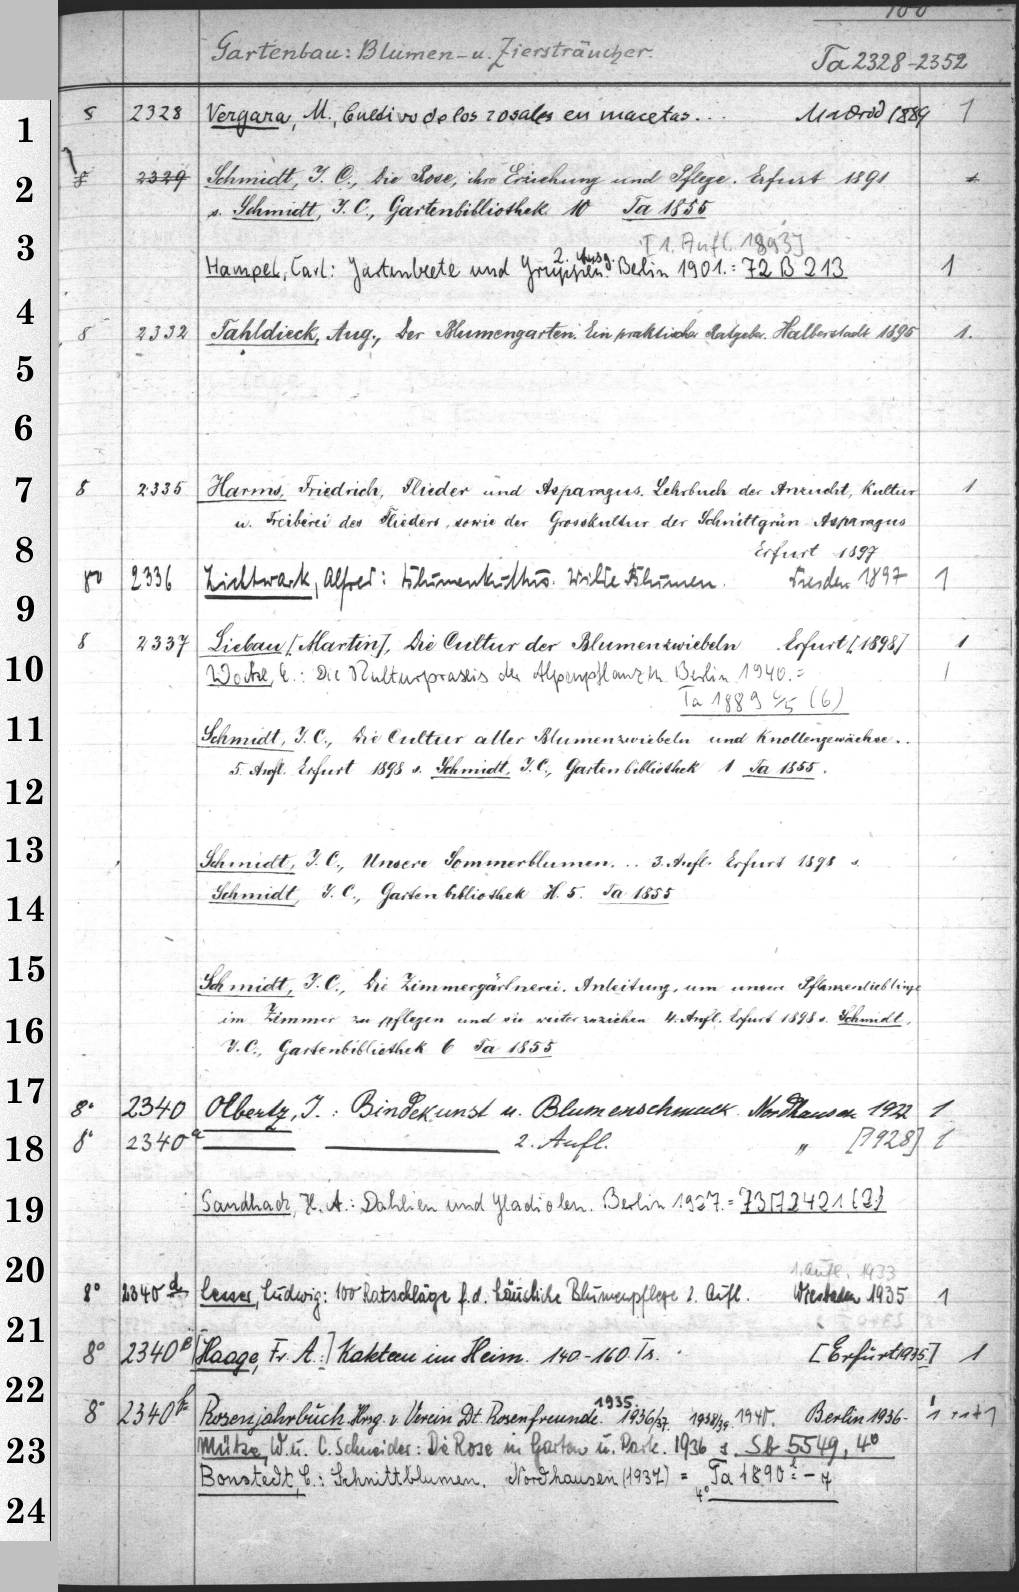 100
Gartenbau: Blumen- u. Ziersträucher. Ta 2328-2352
1 8 2328 Vergara, M., Cultivo de los rosales en macetas... Madrid 1889 1
2 8 2329 Schmidt, J. C., Die Rose, ihre Erziehung und Pflege. Erfurt 1891
s. Schmidt, J. C., Gartenbibliothek 10 Ta 1855
3 [1. Aufl. 1893]
2. Ausg.
Hampel, Carl: Gartenbeete und Gruppen. Berlin 1901. = 72 B 213 1
4 8 2332 Fahldieck, Aug., Der Blumengarten. Ein praktischer Ratgeber. Halberstadt 1895 1.
5
6
7 8 2335 Harms, Friedrich, Flieder und Asparagus. Lehrbuch der Anzucht, Kultur 1
u. Treiberei des Flieders, sowie der Grosskultur der Schnittgrün-Asparagus
8 Erfurt 1897
8° 2336 Lichtwark, Alfred: Blumenkultus. Wilde Blumen. Dresden 1897 1
9
8 2337 Liebau [Martin], Die Cultur der Blumenzwiebeln Erfurt [1898] 1
10 Wocke, E.: Die Kulturpraxis der Alpenpflanzen. Berlin 1940. = 1
Ta 1889 (6)
11 Schmidt, J. C., Die Cultur aller Blumenzwiebeln und Knollengewächse..
5. Aufl. Erfurt 1898 s. Schmidt, J. C., Gartenbibliothek 1 Ta 1855.
12
13 Schmidt, J. C., Unsere Sommerblumen... 3. Aufl. Erfurt 1898 s.
14 Schmidt, J. C., Gartenbibliothek H. 5. Ta 1855
15 Schmidt, J. C., Die Zimmergärtnerei. Anleitung, um unsere Pflanzenlieblinge
16 im Zimmer zu pflegen und sie weiterzuziehen 4. Aufl. Erfurt 1898 s. Schmidt,
J. C., Gartenbibliothek 6 Ta 1855
17 8° 2340 Olbertz, J.: Bindekunst u. Blumenschmuck. Nordhausen 1922 1
18 8° 2340a 2. Aufl. " [1928] 1
19 Sandhack, H. A.: Dahlien und Gladiolen. Berlin 1927. = 73 2421 (2)
20 1. Aufl. 1933
8° 2340 d Lesser, Ludwig: 100 Ratschläge f. d. häusliche Blumenpflege 2. Aufl. Wiesbaden 1935 1
21 8° 2340 e [Haage, Fr. A.:] Kakteen im Heim. 140-160. Ts. [Erfurt 1935] 1
22 8° 2340 f Rosenjahrbuch. Hrsg. v. Verein Dt. Rosenfreunde. 1935. 1936/37 1938/39 1940. Berlin 1936-
23 Mütze, W. u. C. Schneider: Die Rose in Garten u. Park. 1936 s. Sb 5549, 4°
Bonstedt, C.: Schnittblumen. Nordhausen (1937) = 4° Ta 1890 - 7
24